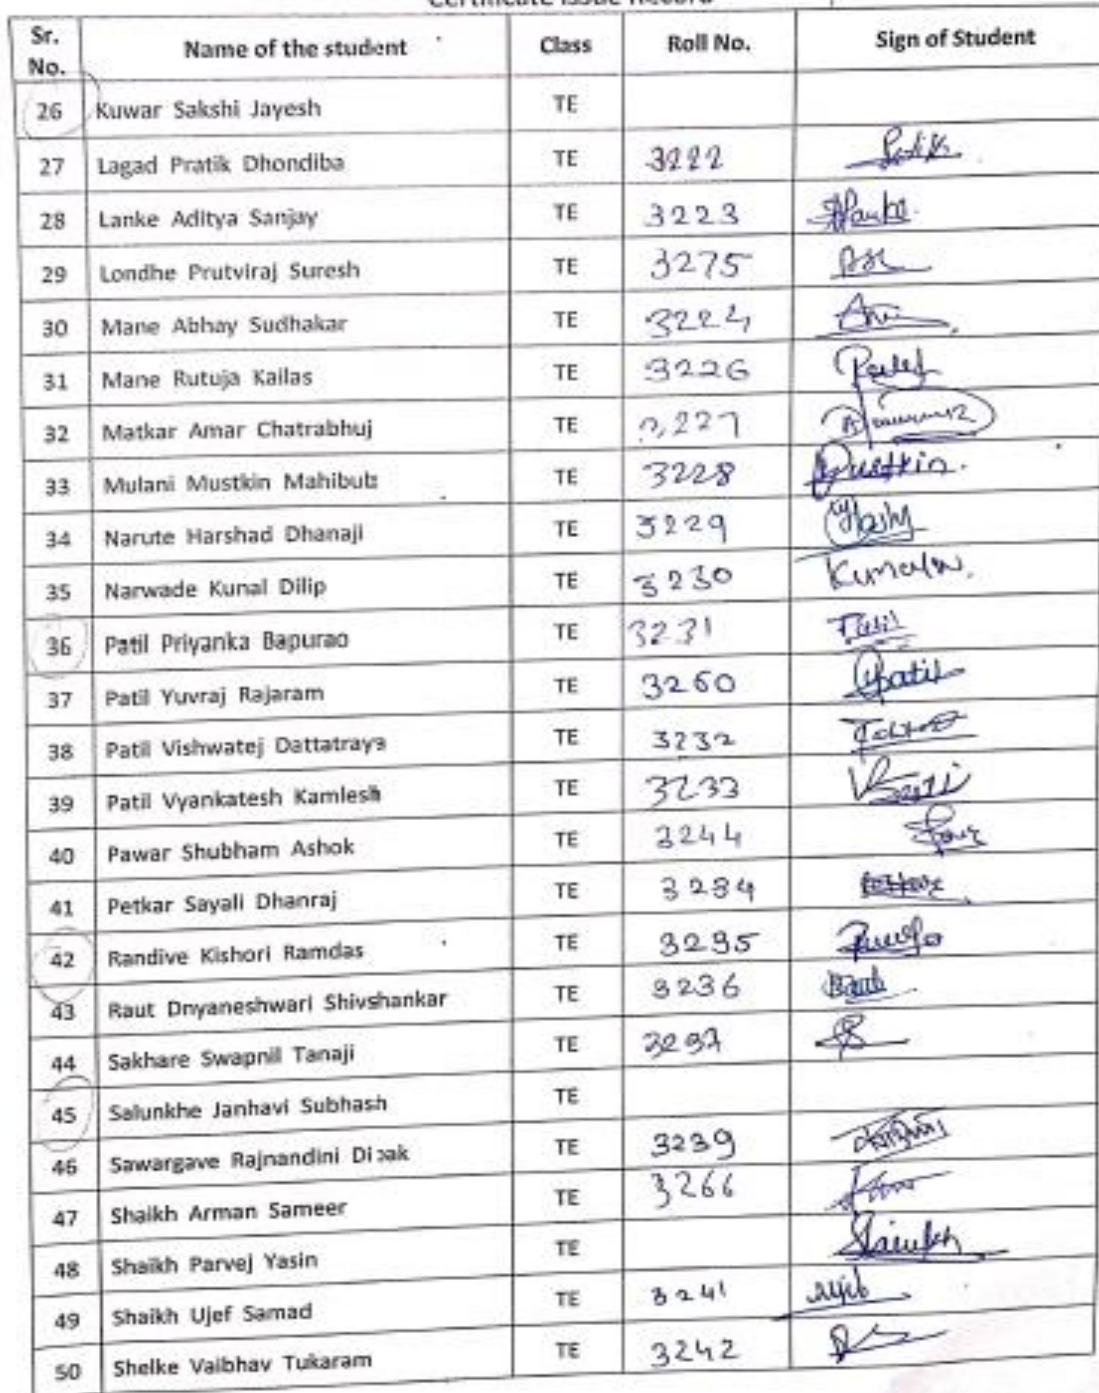 Certificate Issue Record
Sr. No. Name of the student Class Roll No. Sign of Student
26 Kuwar Sakshi Jayesh TE
27 Lagad Pratik Dhondiba TE 3222
28 Lanke Aditya Sanjay TE 3223
29 Londhe Prutviraj Suresh TE 3275
30 Mane Abhay Sudhakar TE 3224
31 Mane Rutuja Kailas TE 3226
32 Matkar Amar Chatrabhuj TE 3227
33 Mulani Mustkin Mahibub TE 3228 Mustkin.
34 Narute Harshad Dhanaji TE 3229
35 Narwade Kunal Dilip TE 3230
36 Patil Priyanka Bapurao TE 3231 Patil
37 Patil Yuvraj Rajaram TE 3260 Ypatil
38 Patil Vishwatej Dattatraya TE 3232
39 Patil Vyankatesh Kamlesh TE 3233
40 Pawar Shubham Ashok TE 3244
41 Petkar Sayali Dhanraj TE 3234
42 Randive Kishori Ramdas TE 3235
43 Raut Dnyaneshwari Shivshankar TE 3236 Raut
44 Sakhare Swapnil Tanaji TE 3237
45 Salunkhe Janhavi Subhash TE
46 Sawargave Rajnandini Dipak TE 3239
47 Shaikh Arman Sameer TE 3266
48 Shaikh Parvej Yasin TE Shaikh
49 Shaikh Ujef Samad TE 3241
50 Shelke Vaibhav Tukaram TE 3242